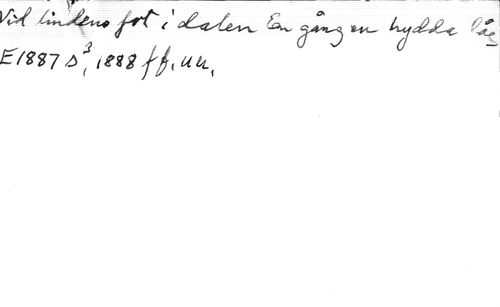 Vid lindens fot i dalen En gång en hydda låg
E1887 s³, 1888 ff, uu,